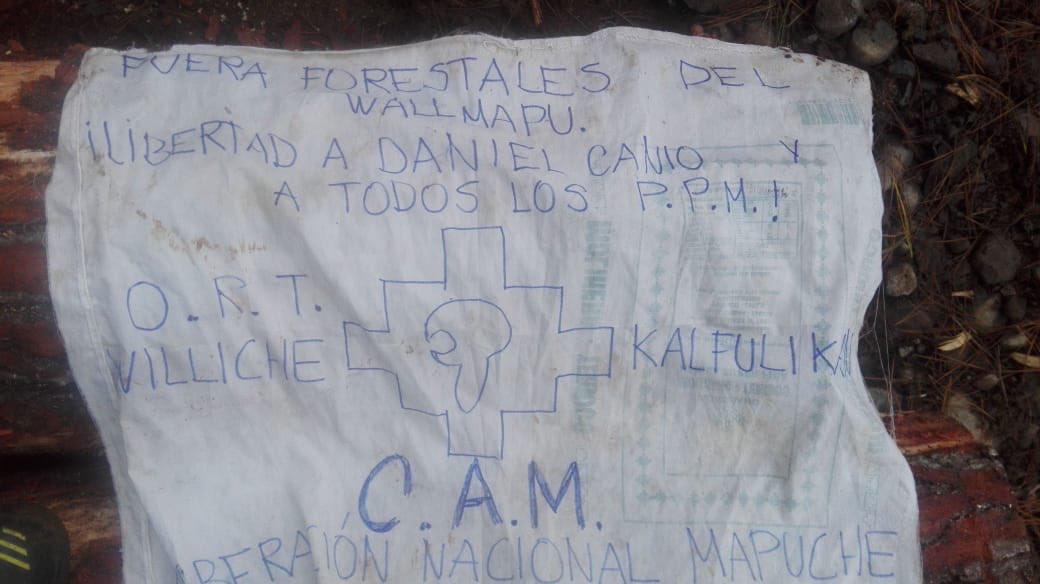 FUERA FORESTALES DEL
WALLMAPU.
¡LIBERTAD A DANIEL CANIO Y
A TODOS LOS P.P.M.!
O.R.T.
VILLICHE KALFULIKAN
C.A.M.
BERAIÓN NACIONAL MAPUCHE